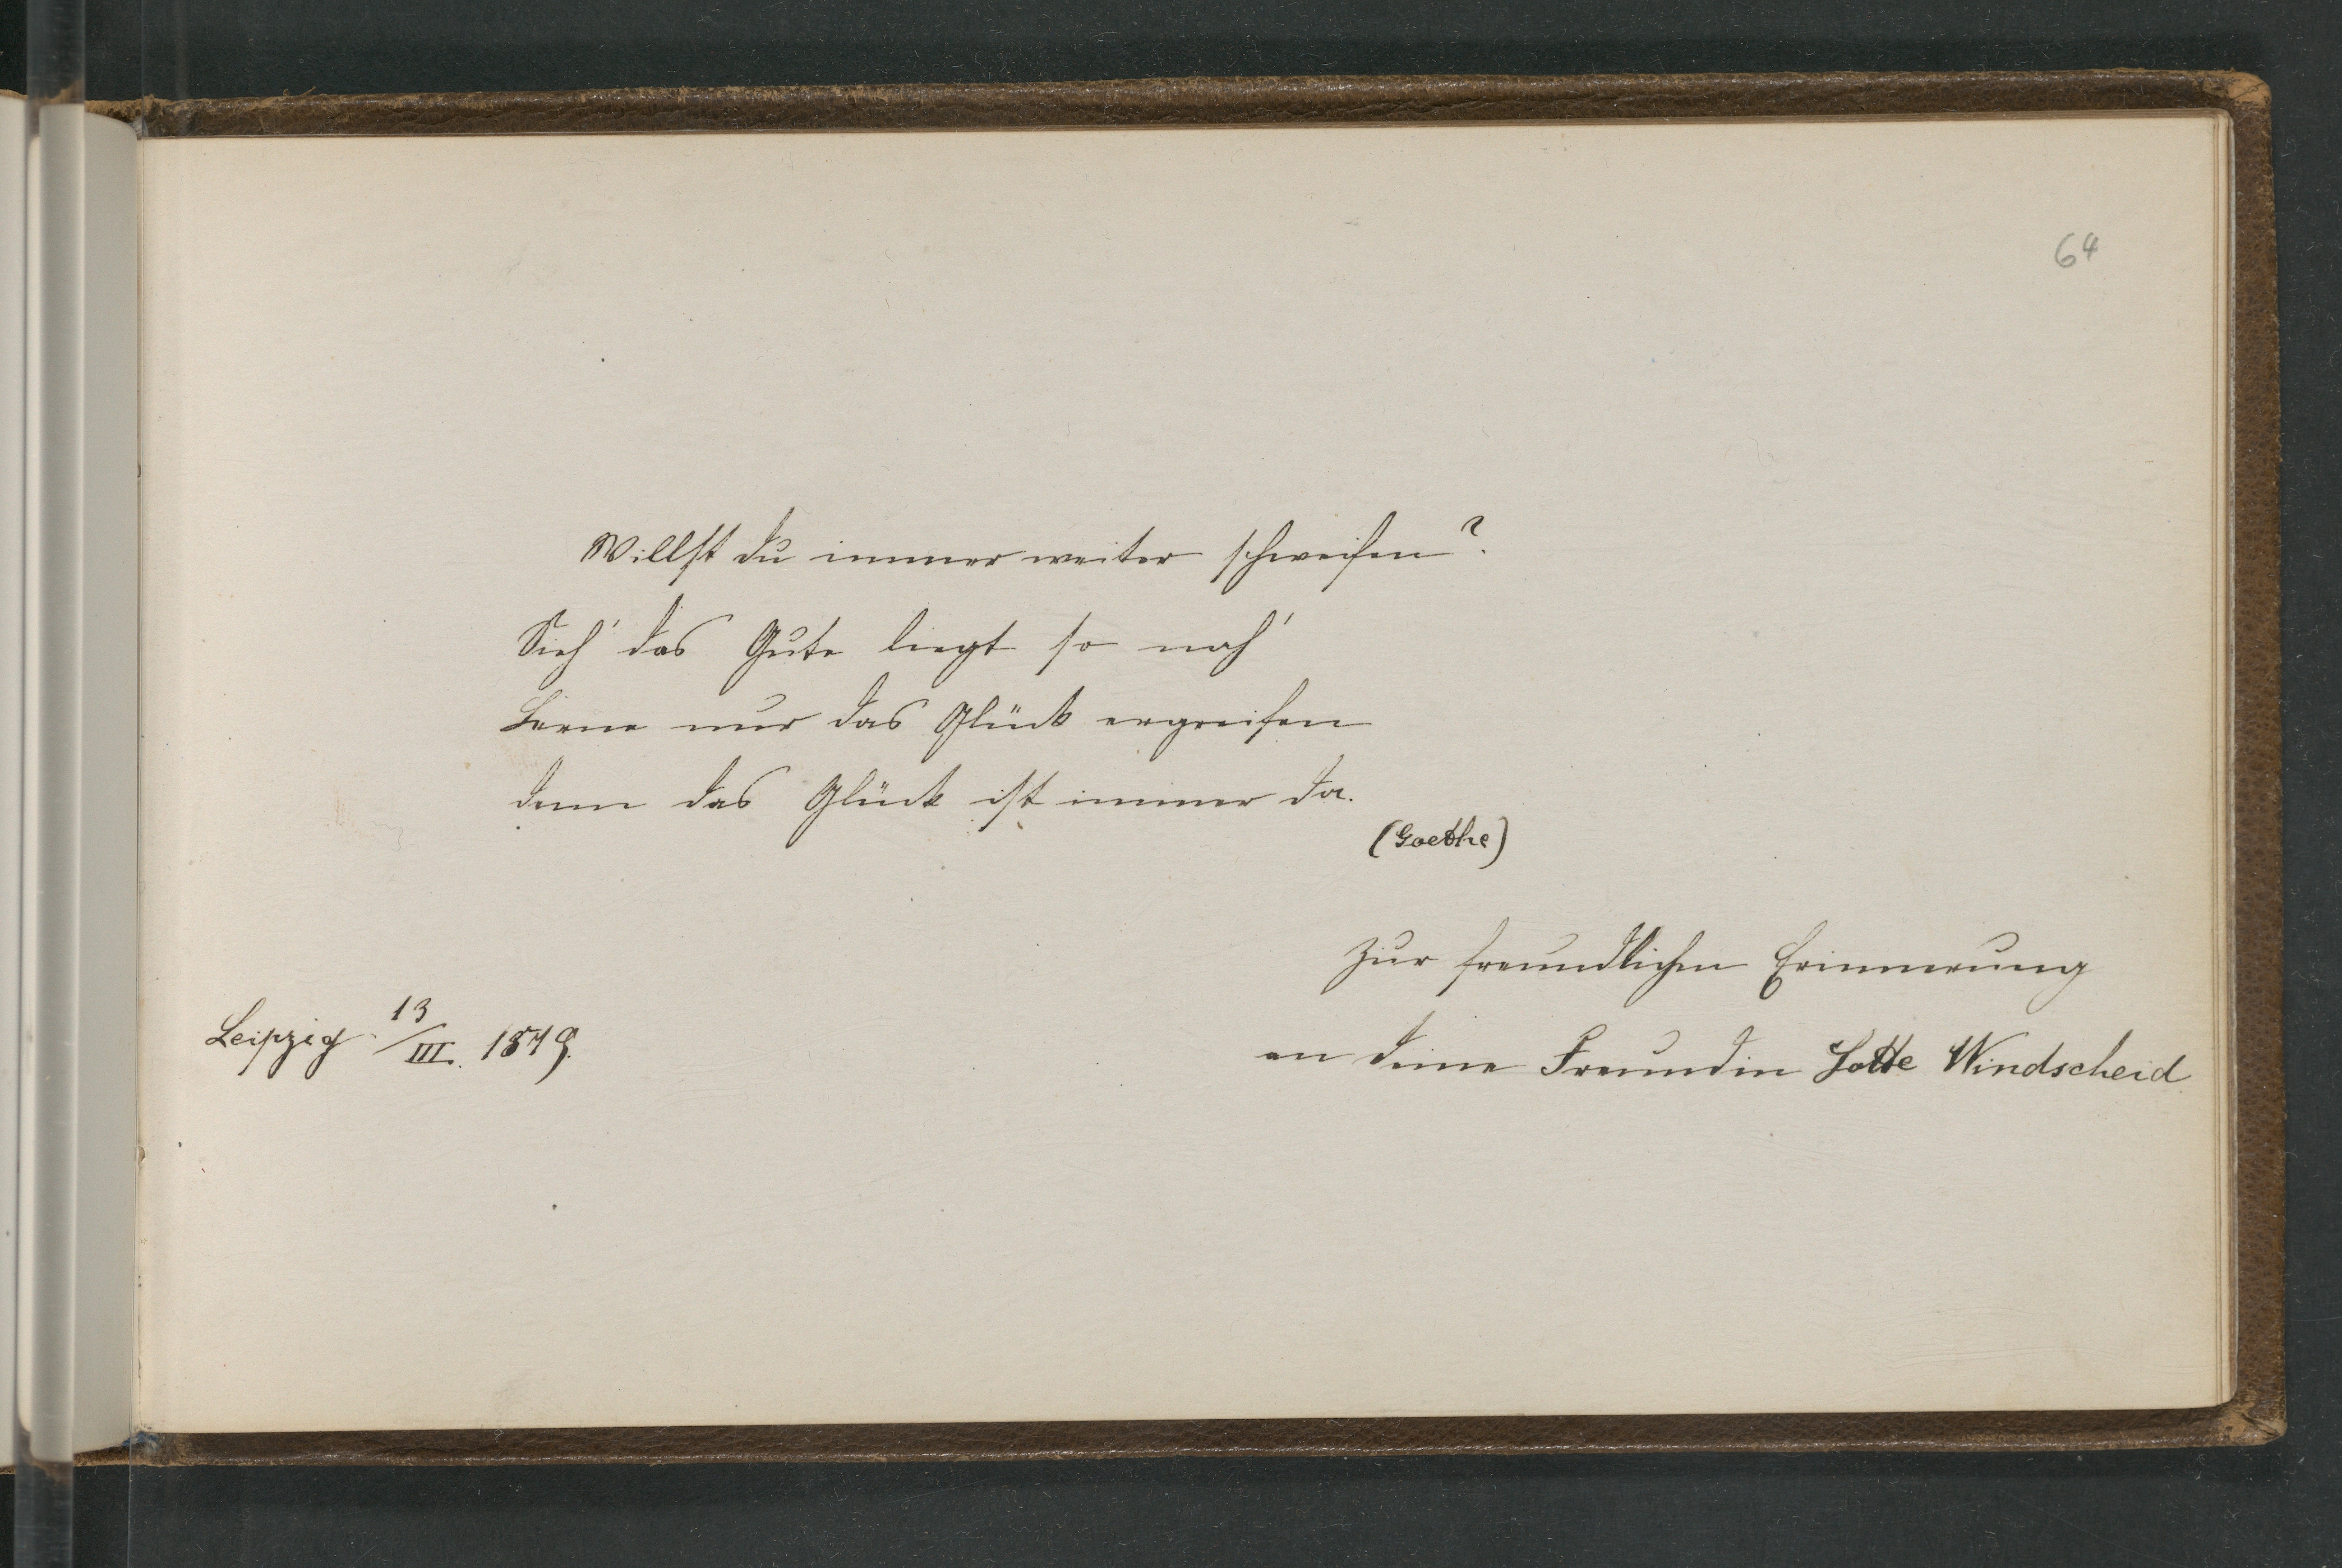 64
Willst du immer weiter schweifen?
Sieh' das Gute liegt so nah'
Lerne nur das Glück ergreifen
denn das Glück ist immer da.
(Goethe)
Zur freundlichen Erinnerung
an deine Freundin Lotte Windscheid
Leipzig 13/III. 1879.